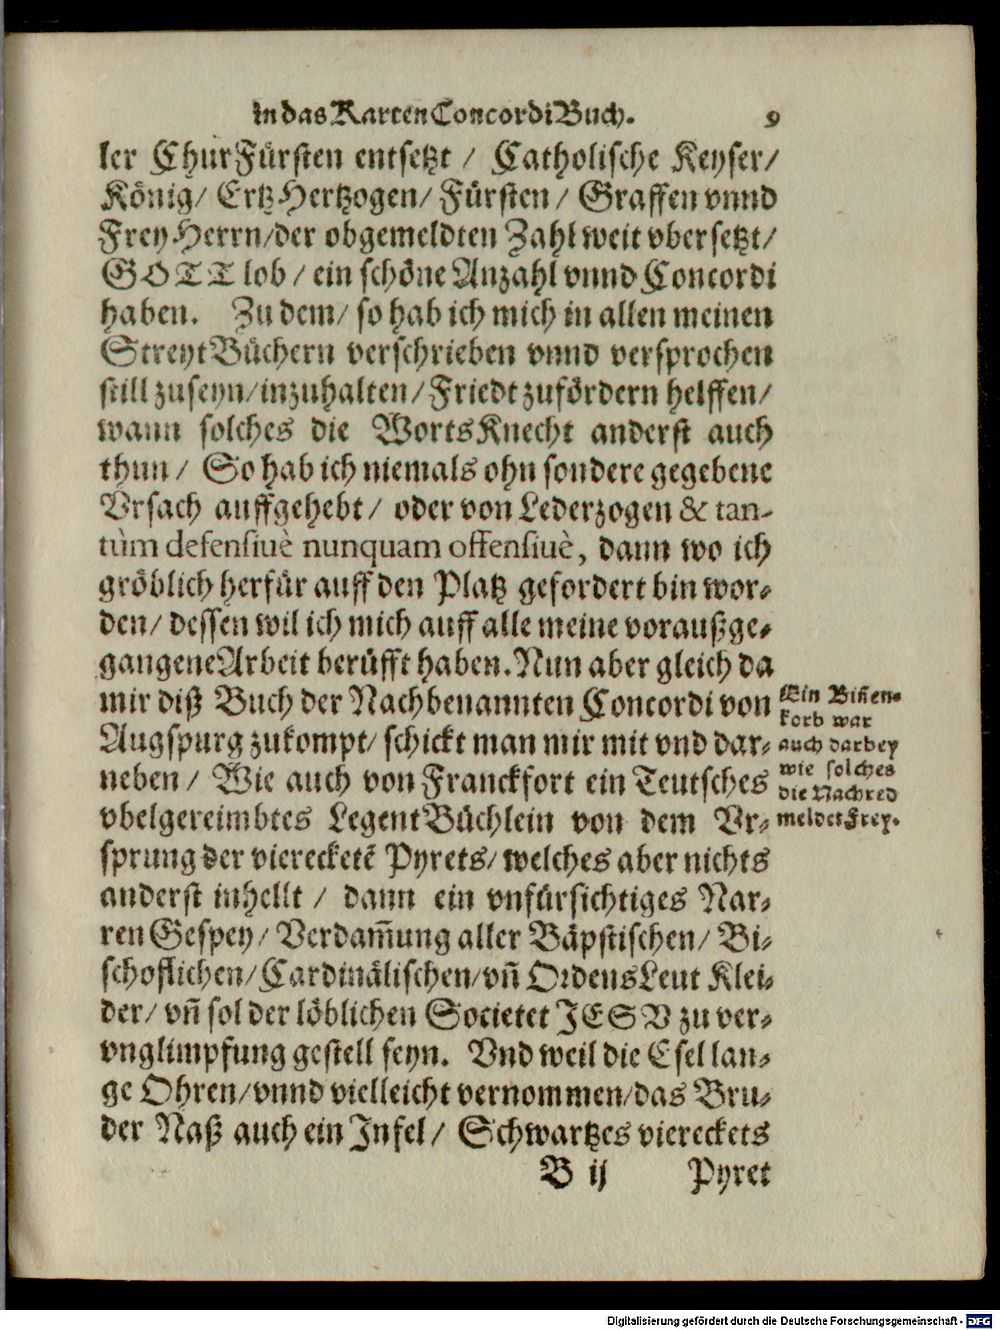 in das Karten Concordi Buch. 9
ler ChurFürsten entsetzt / Catholische Keyser/
König/ ErtzHertzogen/ Fürsten / Graffen vnnd
FreyHerrn/der obgemeldten Zahl weit vbersetzt/
GOTT lob / ein schöne Anzahl vnnd Concordi
haben. Zu dem/ so hab ich mich in allen meinen
StreytBüchern verschrieben vnnd versprochen
still zuseyn/inzuhalten/Friedt zufördern helffen/
wann solches die WortsKnecht anderst auch
thun / So hab ich niemals ohn sondere gegebene
Vrsach auffgehebt / oder von Lederzogen & tan-
tùm defensiuè nunquam offensiuè, dann wo ich
gröblich herfür auff den Platz gefordert bin wor-
den/ dessen wil ich mich auff alle meine voraußge-
gangene Arbeit berüfft haben. Nun aber gleich da
mir diß Buch der Nachbenannten Concordi von
Augspurg zukompt/ schickt man mir mit vnd dar-
neben / Wie auch von Franckfort ein Teutsches
vbelgereimbtes LegentBüchlein von dem Vr-
sprung der viereckete͂ Pyrets/ welches aber nichts
anderst inhellt / dann ein vnfürsichtiges Nar-
ren Gespey/ Verdam̃ung aller Bäpstischen/ Bi-
schoflichen/Cardinälischen/vn̄ OrdensLeut Klei-
der/ vn̄ sol der löblichen Societet JESV zu ver-
vnglimpfung gestell seyn. Vnd weil die Esel lan-
ge Ohren/vnnd vielleicht vernommen/das Bru-
der Naß auch ein Infel / Schwartzes viereckets
B ij Pyret
Ein Bin̄en-
korb war
auch darbey
wie solches
die Nachred
meldet Frey.
Digitalisierung gefördert durch die Deutsche Forschungsgemeinschaft - DFG